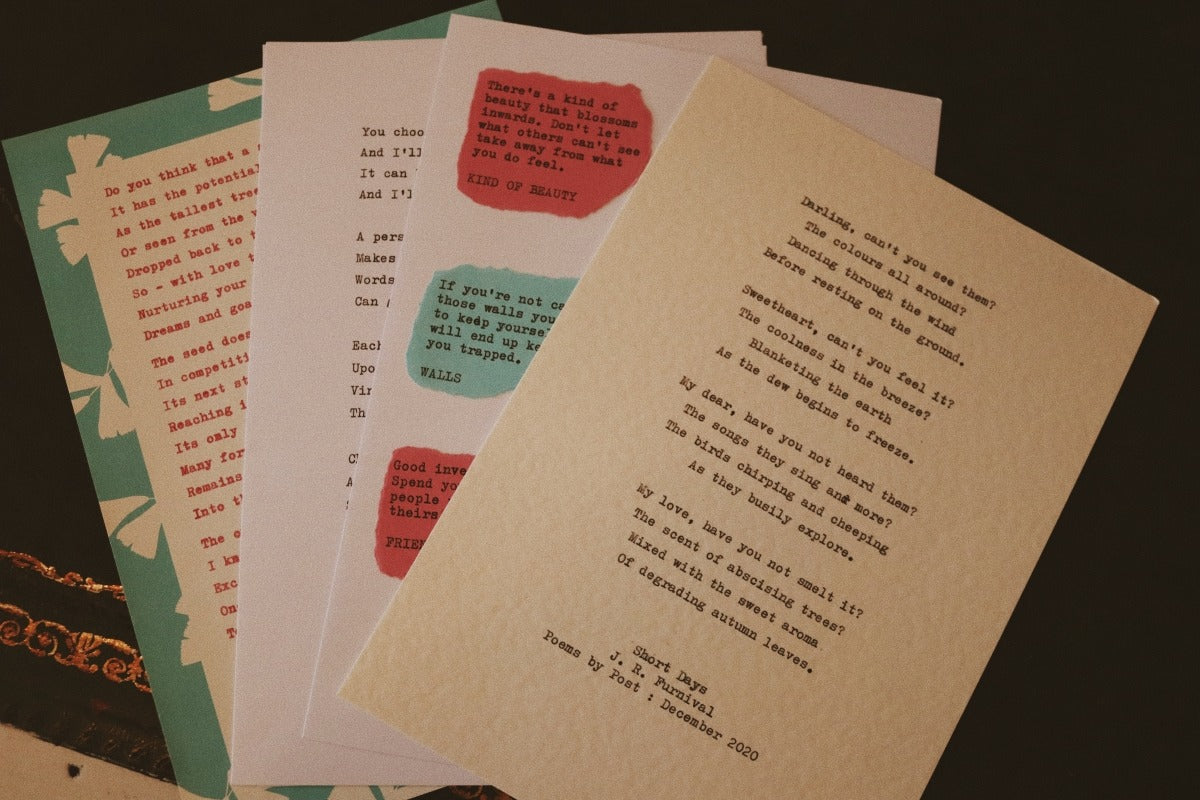 Do you think that a
It has the potential
As the tallest tree
Or seen from the
Dropped back to
So - with love
Nurturing your
Dreams and
The seed does
In
Its next
Reaching
Its only
Many
Remains
Into
The
I
You
And I'll
It can
And I'll
A
Makes
Words
Can
Each
Upo
There's a kind of
beauty that blossoms
inwards. Don't let
what others can't see
take away from what
you do feel.
KIND OF BEAUTY
If you're not
those walls you
to keep
will end up
you trapped.
WALLS
Good
Spend
people
theirs
Darling, can't you see them?
The colours all around?
Dancing through the wind
Before resting on the ground.
Sweetheart, can't you feel it?
The coolness in the breeze?
Blanketing the earth
As the dew begins to freeze.
My dear, have you not heard them?
The songs they sing and more?
The birds chirping and cheeping
As they busily explore.
My love, have you not smelt it?
The scent of abscising trees?
Mixed with the sweet aroma
Of degrading autumn leaves.
Short Days
J. R. Furnival
Poems by Post : December 2020